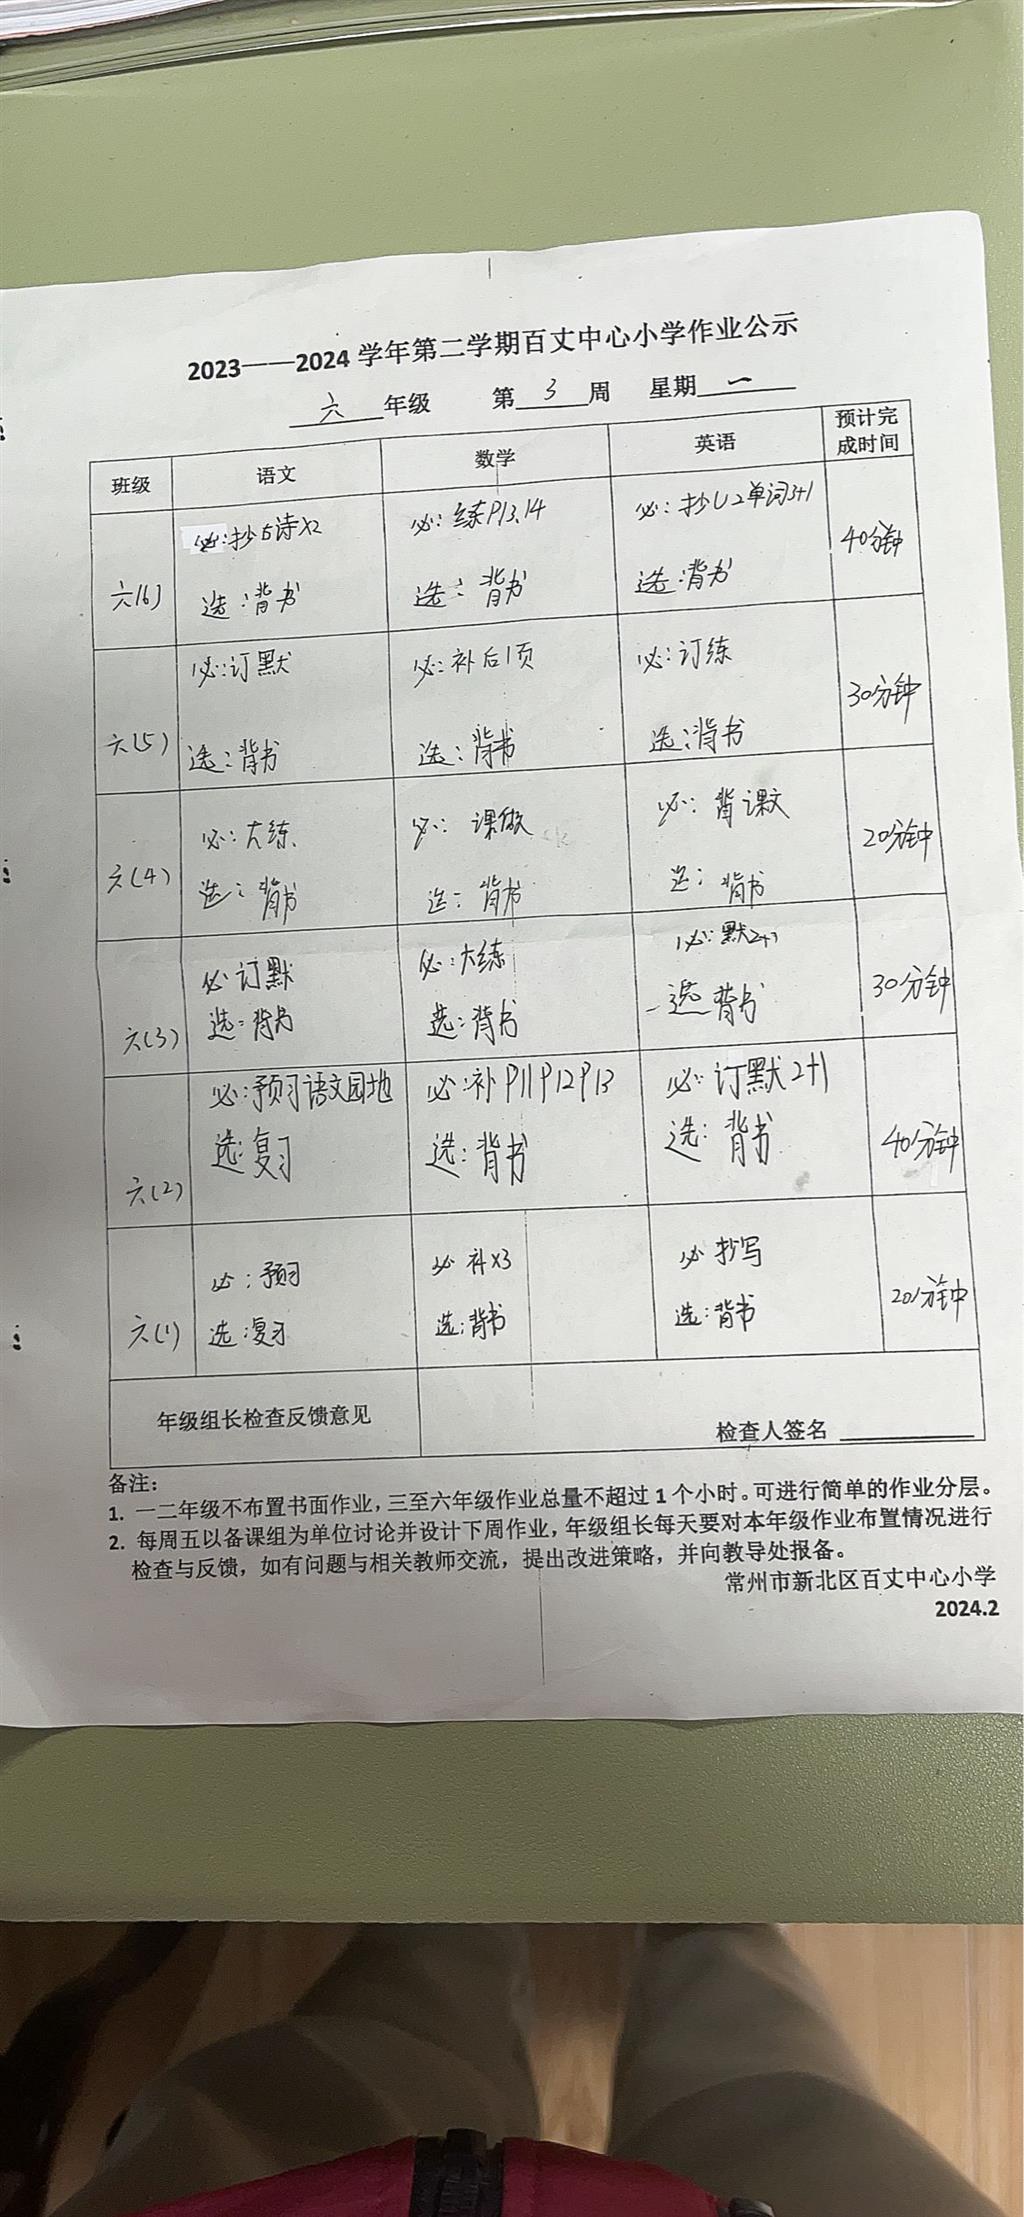 2023——2024 学年第二学期百丈中心小学作业公示
六 年级 第 3 周 星期 一
班级 语文 数学 英语 预计完成时间
六(6)
必:抄古诗x2
选:背书
必:练P13.14
选:背书
必:抄U2单词3+1
选:背书
40分钟
六(5)
必:订默
选:背书
必:补后1页
选:背书
必:订练
选:背书
30分钟
六(4)
必:大练
选:背书
必:课做
选:背书
必:背课文
选:背书
20分钟
六(3)
必 订默
选:背书
必:大练
选:背书
必:默2+1
选 背书
30分钟
六(2)
必:预习语文园地
选:复习
必:补P11P12P13
选:背书
必:订默2+1
选:背书
40分钟
六(1)
必:预习
选:复习
必 补x3
选:背书
必 抄写
选:背书
20分钟
年级组长检查反馈意见
检查人签名
备注:
1. 一二年级不布置书面作业,三至六年级作业总量不超过 1 个小时。可进行简单的作业分层。
2. 每周五以备课组为单位讨论并设计下周作业,年级组长每天要对本年级作业布置情况进行
检查与反馈,如有问题与相关教师交流,提出改进策略,并向教导处报备。
常州市新北区百丈中心小学
2024.2